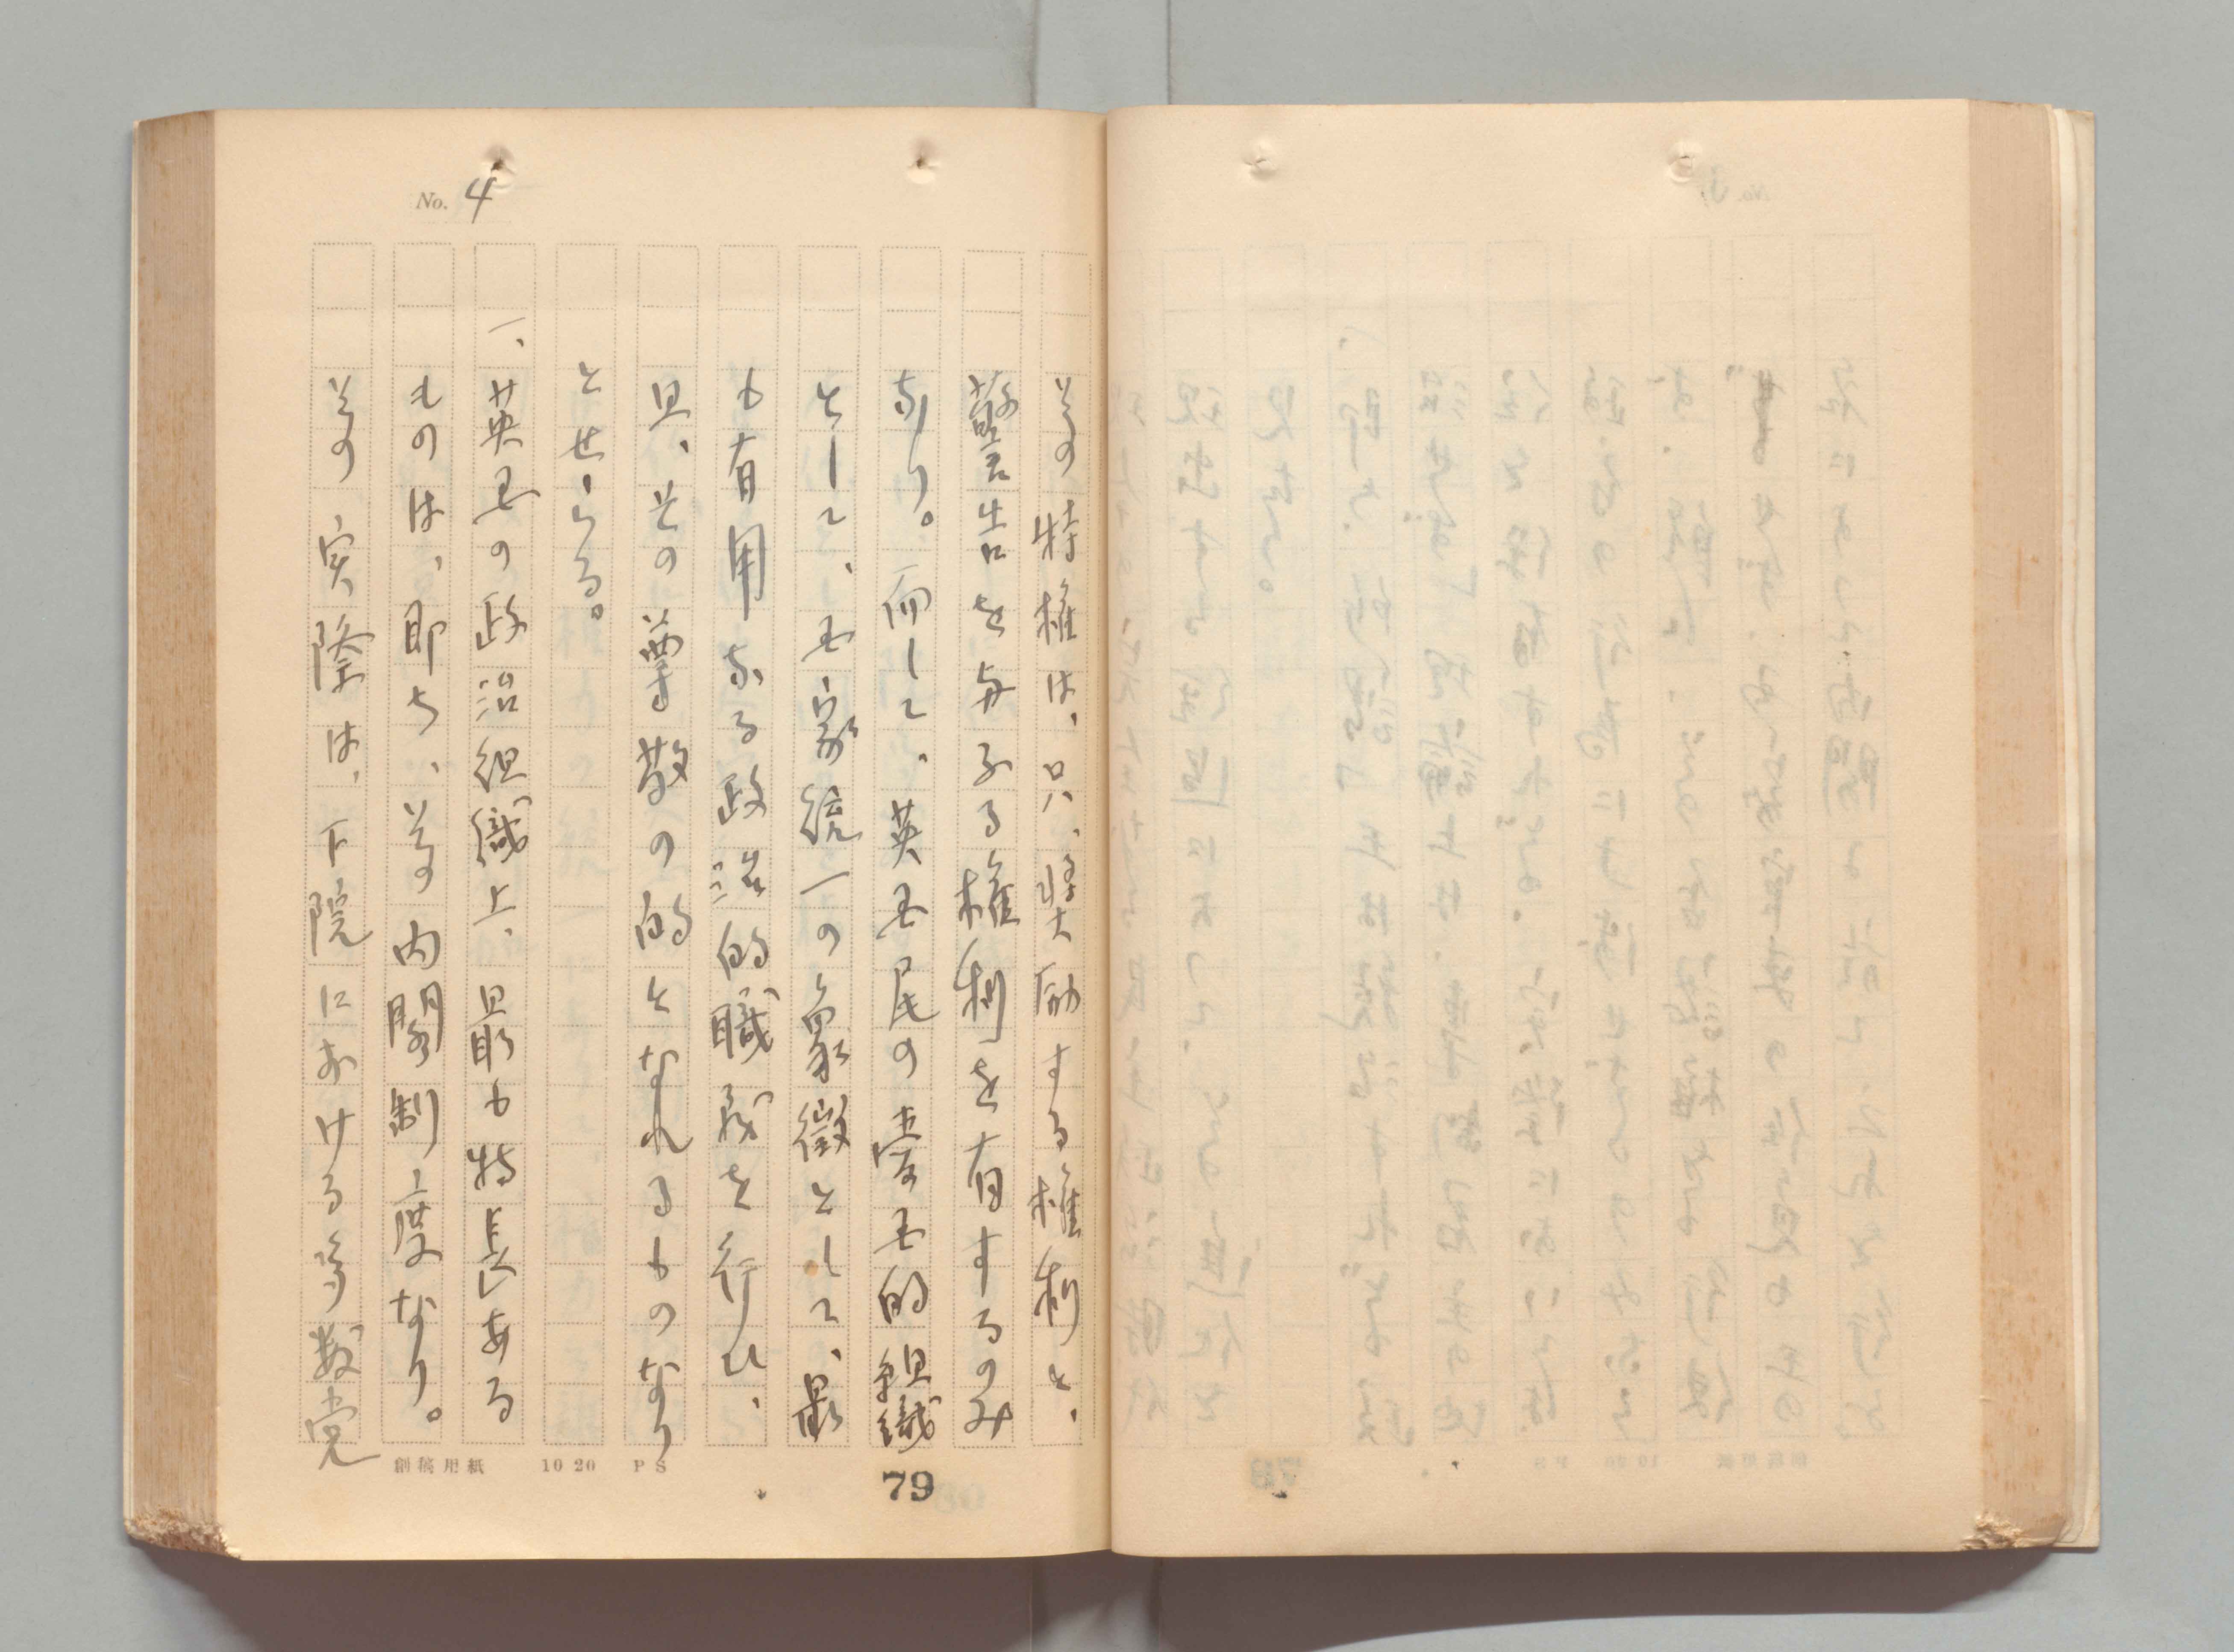 No. 4
その特権は、只、奨励する権利と、
警告を与ふる権利を有するのみ
なり。而して、英国民の挙国的組織
として、国家統一の象徴として、最
も有用なる政治的職務を行ひ、
且、その尊敬の的となれるものなり
とせらる。
一、英国の政治組織上、最も特長ある
ものは、即ち、その内閣制度なり。
その実際は、下院における多数党
創稿用紙 10 20 PS
79